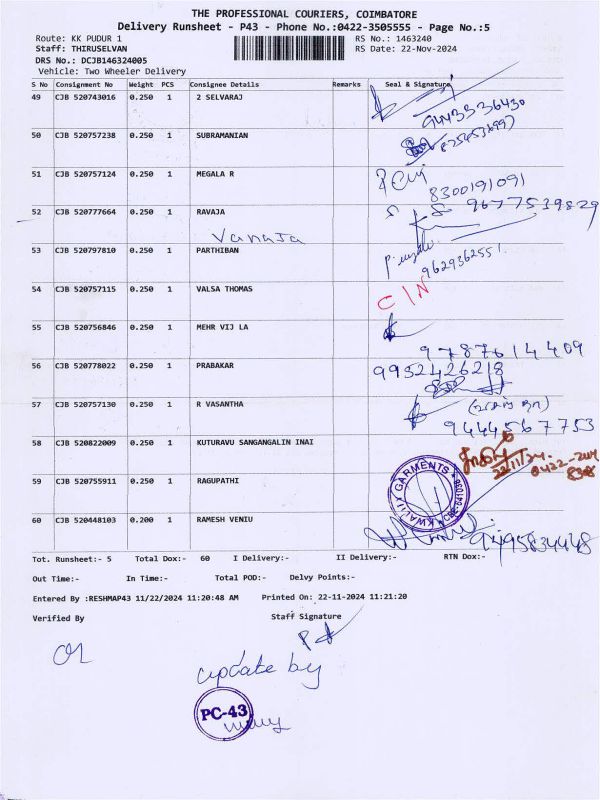 THE PROFESSIONAL COURIERS, COIMBATORE
Delivery Runsheet - P43 - Phone No.:0422-3505555 - Page No.:5
Route: KK PUDUR 1 RS No.: 1463240
Staff: THIRUSELVAN RS Date: 22-Nov-2024
DRS No.: DCJB146324005
Vehicle: Two Wheeler Delivery
S No Consignment No Weight PCS Consignee Details Remarks Seal & Signature
49 CJB 520743016 0.250 1 2 SELVARAJ
9443336430
50 CJB 520757238 0.250 1 SUBRAMANIAN
51 CJB 520757124 0.250 1 MEGALA R
8300191091
52 CJB 520777664 0.250 1 RAVAJA 9677539829
Vanaja
53 CJB 520797810 0.250 1 PARTHIBAN
9629362551
54 CJB 520757115 0.250 1 VALSA THOMAS C/N
55 CJB 520756846 0.250 1 MEHR VIJ LA
9787614409
56 CJB 520778022 0.250 1 PRABAKAR 9952426218
57 CJB 520757130 0.250 1 R VASANTHA
9444567753
58 CJB 520822009 0.250 1 KUTURAVU SANGANGALIN INAI
22/11/24
59 CJB 520755911 0.250 1 RAGUPATHI KWALITY GARMENTS
60 CJB 520448103 0.200 1 RAMESH VENIU
9495834448
Tot. Runsheet:- 5 Total Dox:- 60 I Delivery:- II Delivery:- RTN Dox:-
Out Time:- In Time:- Total POD:- Delvy Points:-
Entered By :RESHMAP43 11/22/2024 11:20:48 AM Printed On: 22-11-2024 11:21:20
Verified By Staff Signature
update by
PC-43